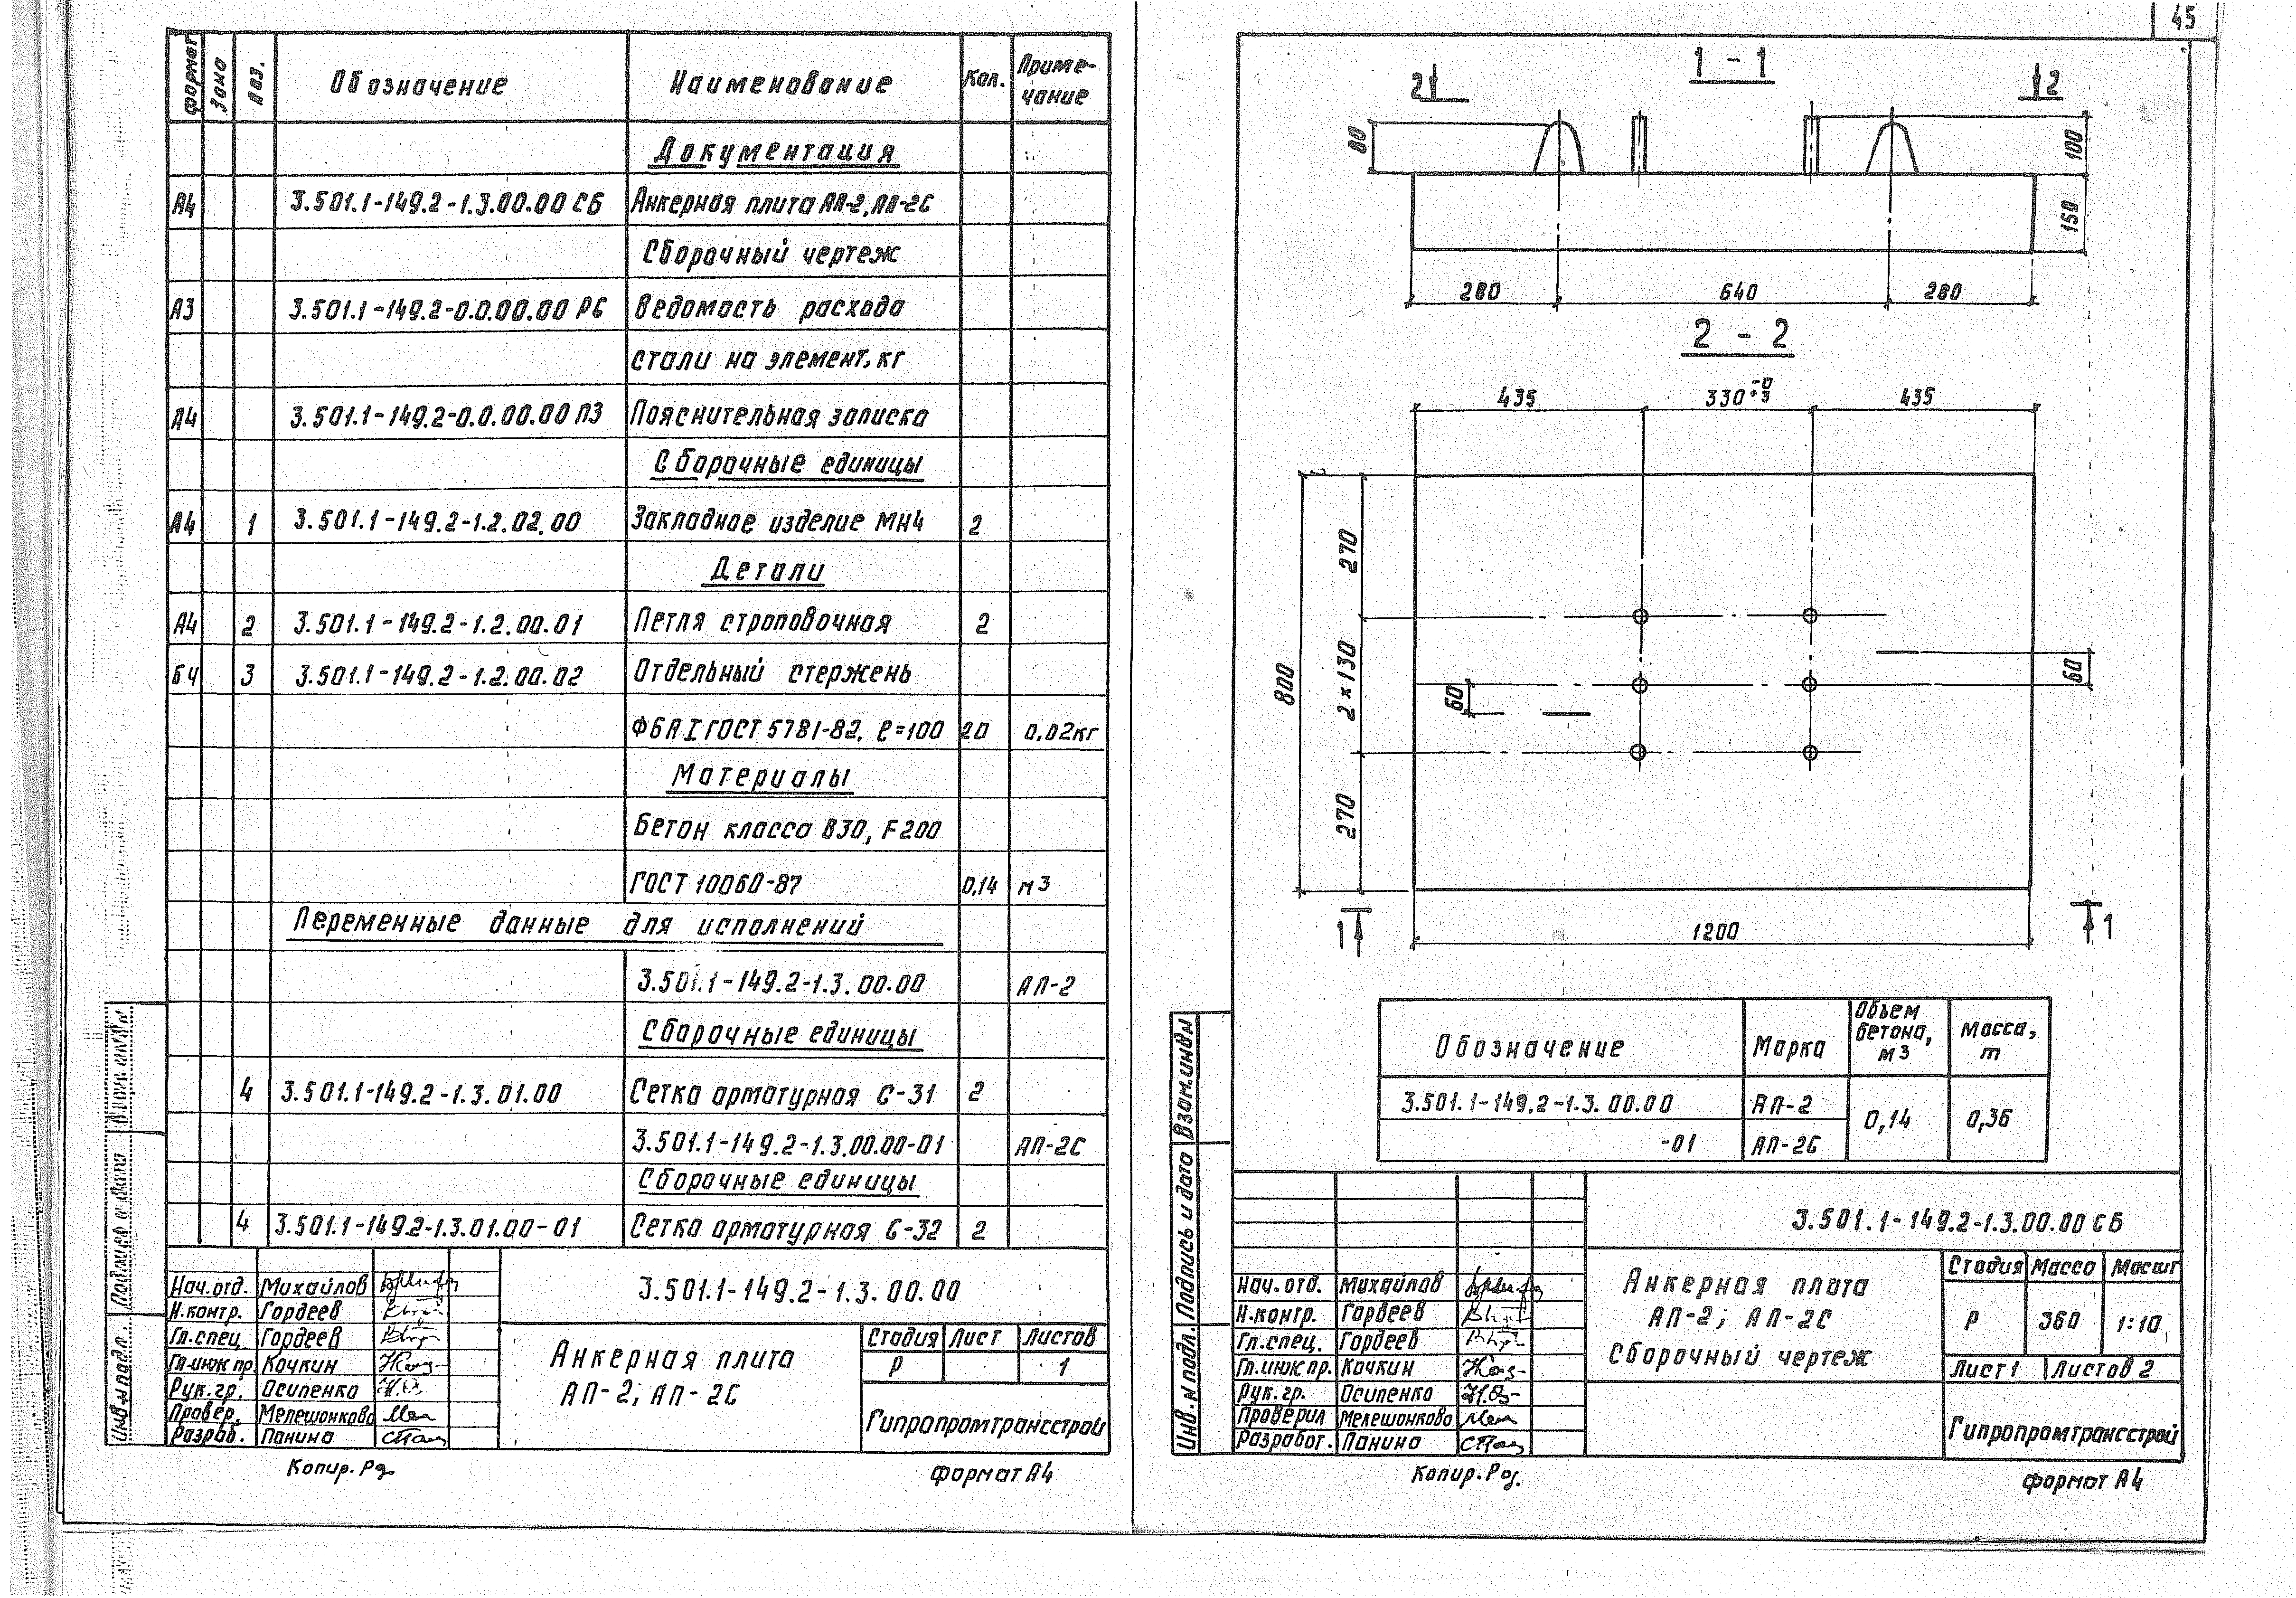 45
формат
Зона
Поз.
Обозначение
Наименование
Кол.
Приме-
чание
Документация
А4 3.501.1-149.2-1.3.00.00 СБ Анкерная плита АП-2, АП-2С
Сборочный чертеж
А3 3.501.1-149.2-0.0.00.00 РС Ведомость расхода
стали на элемент, кг
А4 3.501.1-149.2-0.0.00.00 ПЗ Пояснительная записка
Сборочные единицы
А4 1 3.501.1-149.2-1.2.02.00 Закладное изделие МН4 2
Детали
А4 2 3.501.1-149.2-1.2.00.01 Петля строповочная 2
БЧ 3 3.501.1-149.2-1.2.00.02 Отдельный стержень
Ф6АI ГОСТ 5781-82, ℓ=100 20 0,02кг
Материалы
Бетон класса В30, F200
ГОСТ 10060-87 0,14 м3
Переменные данные для исполнений
3.501.1-149.2-1.3.00.00 АП-2
Сборочные единицы
4 3.501.1-149.2-1.3.01.00 Сетка арматурная С-31 2
3.501.1-149.2-1.3.00.00-01 АП-2С
Сборочные единицы
4 3.501.1-149.2-1.3.01.00-01 Сетка арматурная С-32 2
Нач.отд. Михайлов
Н.контр. Гордеев
Гл.спец. Гордеев
Гл.инж пр. Кочкин
Рук.гр. Осипенко
Провер. Мелешонкова
Разраб. Панина
3.501.1-149.2-1.3.00.00
Анкерная плита
АП-2; АП-2С
Стадия Лист Листов
Р 1
Гипропромтрансстрой
Инв.N подл.
Подпись и дата
Взам.инв.N
Копир. Рд.
формат А4
1 - 1
2 2
80
100
150
280 640 280
2 - 2
435 330 -0 +3 435
270
800
2 × 130
60
60
270
1 1
1200
Обозначение Марка Объем бетона, м3 Масса, т
3.501.1-149.2-1.3.00.00 АП-2 0,14 0,36
-01 АП-2С
3.501.1-149.2-1.3.00.00 СБ
Нач.отд. Михайлов
Н.контр. Гордеев
Гл.спец. Гордеев
Гл.инж пр. Кочкин
Рук.гр. Осипенко
Проверил Мелешонкова
Разработ. Панина
Анкерная плата
АП-2; АП-2С
Сборочный чертеж
Стадия Масса Масшт
Р 360 1:10
Лист 1 Листов 2
Гипропромтрансстрой
Инв.N подл. Подпись и дата Взам.инв.N
Копир. Рд.
формат А4